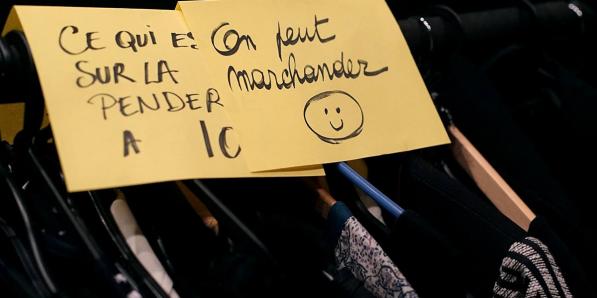 CE QUI
SUR LA
PENDER
A 10
On peut
marchander